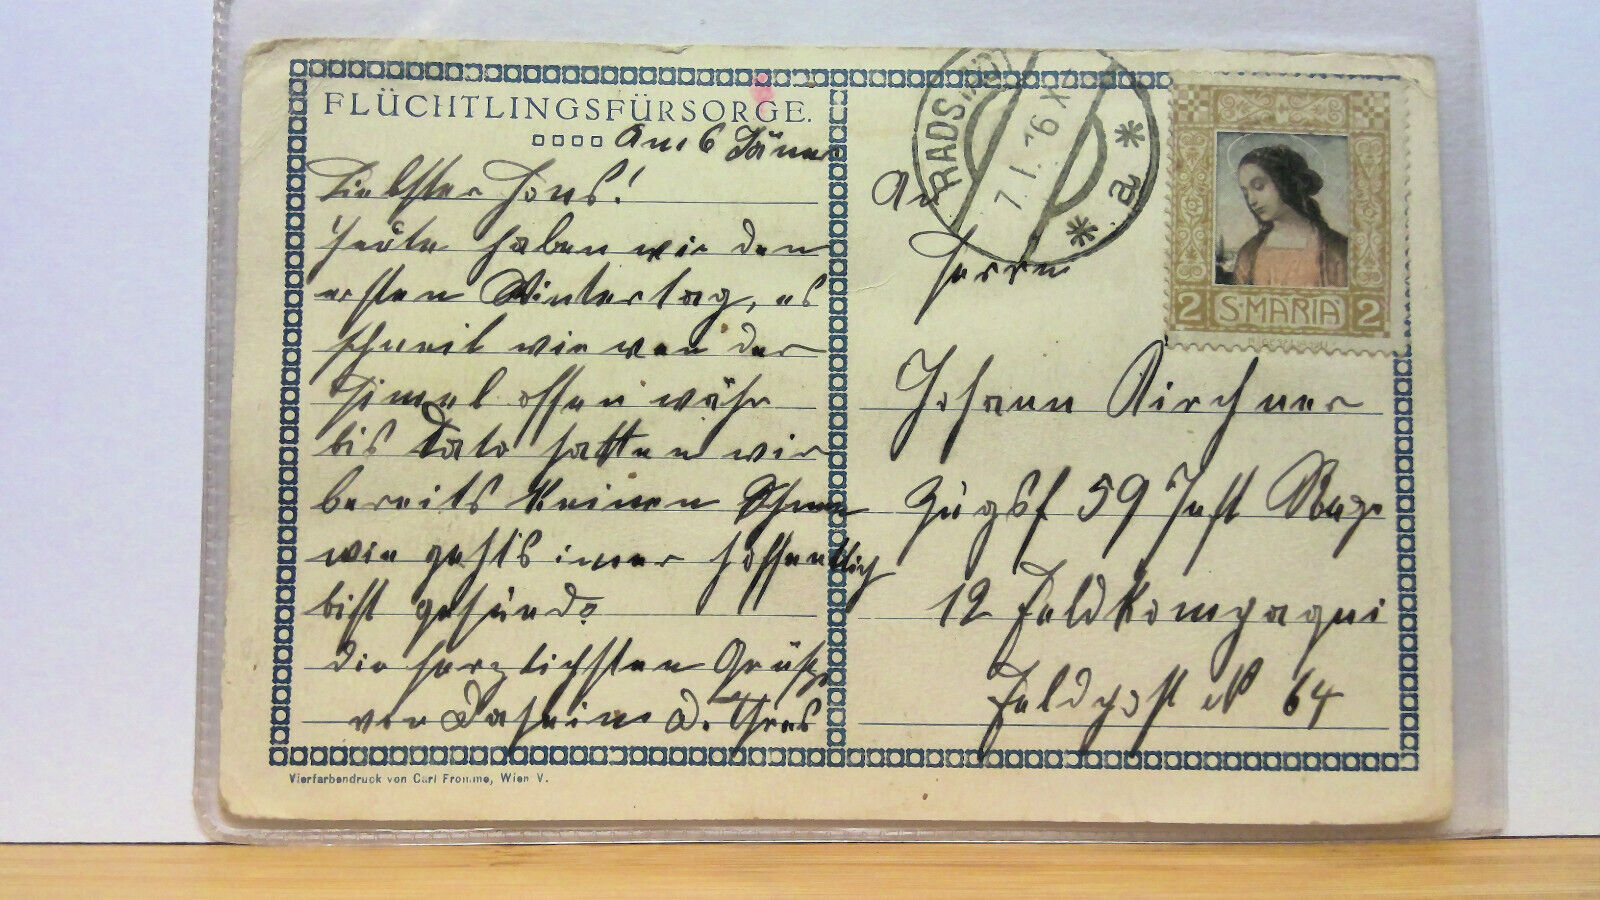 FLÜCHTLINGSFÜRSORGE.
Am 6 Jänner
Liebster Hans!
Heute haben wir den
ersten Wintertag, es
schneit wie von der
Himel offen währ
bis Dato hatten wir
bereits keinen Schnee
wie gehts imer hoffentlich
bist gesund.
die herzlichsten Grüße
von Daheim d. Thres
Vierfarbendruck von Carl Fromme, Wien V.
RADS
7.I.16 X
* a *
2 S·MARIA 2
An
Herrn
Johann Kirchner
Zugsf 59 Inft Reg.
12 Feldkompagni
Feldpost No 64